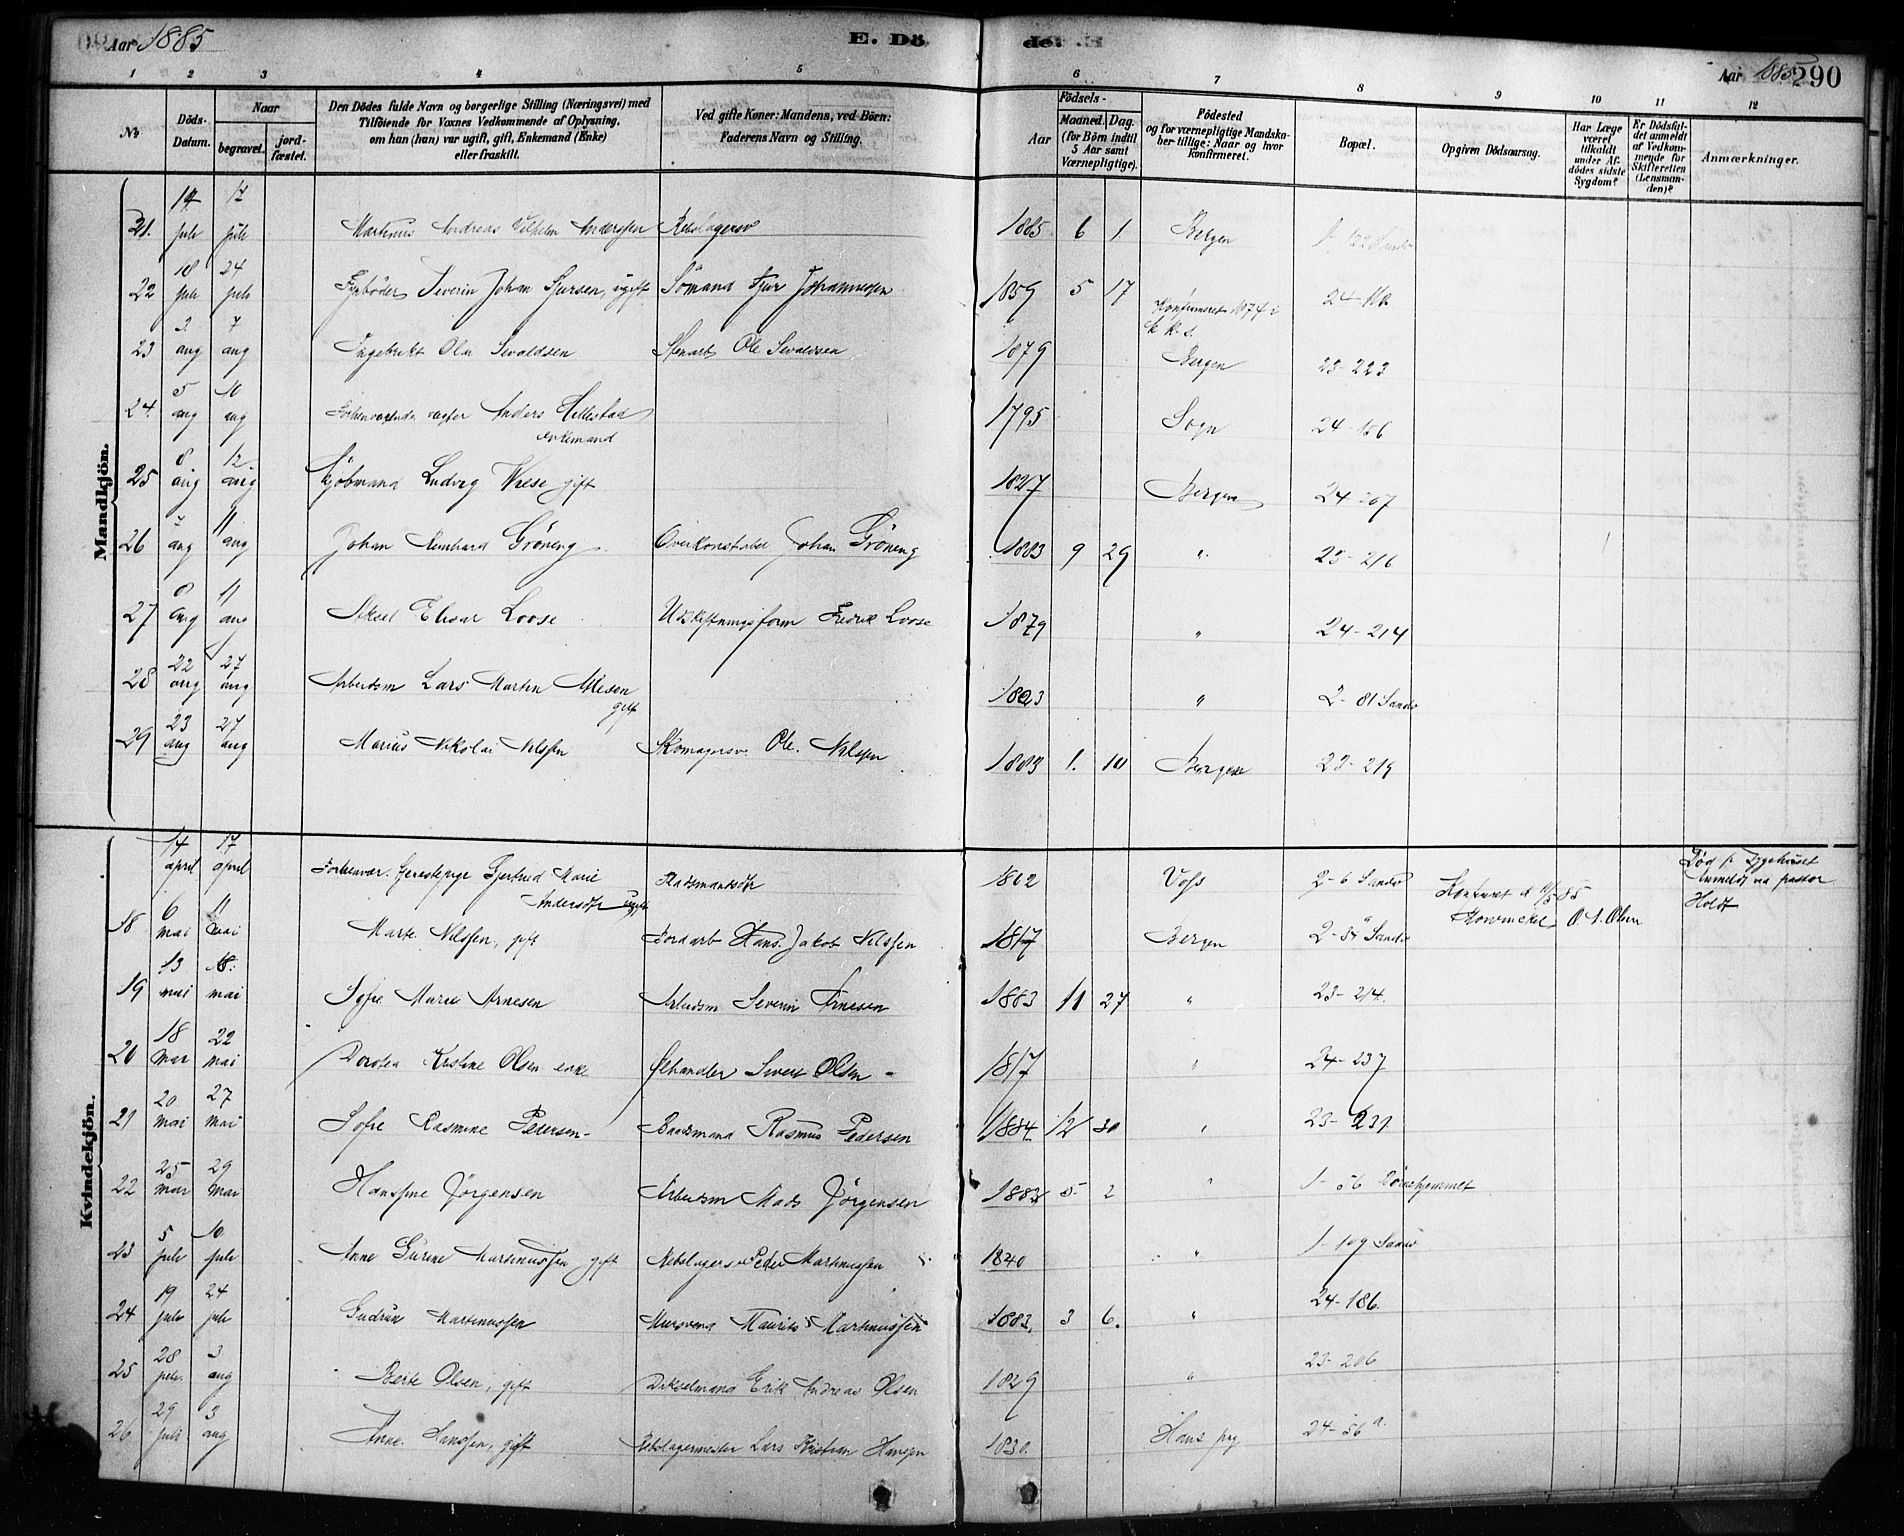 Aar 1885 E. Dö
de. Aar 1885 290
1 2 3 4 5 6 7 8 9 10 11 12
No
Döds-
Datum.
Naar
begravet.
jord-
fæstet.
Den Dödes fulde Navn og borgerlige Stilling (Næringsvei) med
Tilföiende for Voxnes Vedkommende af Oplysning,
om han (hun) var ugift, gift, Enkemand (Enke)
eller fraskilt.
Ved gifte Koner: Mandens, ved Börn:
Faderens Navn og Stilling.
Födsels-
Aar
Maaned. Dag.
(for Börn indtil
5 Aar samt
Værnepligtige).
Födested
og for værnepligtige Mandska-
ber tillige: Naar og hvor
konfirmeret.
Bopæl.
Opgiven Dödsaarsag.
Har Læge
været
tilkaldt
under Af-
dödes sidste
Sygdom?
Er Dödsfal-
det anmeldt
af Vedkom-
mende for
Skifteretten
(Lensman-
den)?
Anmærkninger.
Mandkjön.
21. 14 juli 17 juli Martinus Andreas Vilhelm Anderssen Rebslagersv 1885 6 1 Bergen
22 18 juli 24 juli Fyrböder Severin Johan Sjursen, ugift Sömand Sjur Johannesen 1859 5 17 Konfirmeret 1874 i
23 3 aug 7 aug Ingebrikt Olai Sevaldsen Stenarb Ole Sevaldsen 1879 Bergen 23-223
24. 5 aug 10 aug Forhenværende vægter Anders Hillestad 1795 Sogn 24-156
enkemand
25 8 aug 12. aug Kjöbmand Ludvig Wiese gift 1827 Bergen 24-207
26 aug 11 aug Johan Reinhard Gröning Overkonstabel Johan Gröning 1883 9 29 " 23-216
27 8 aug 11 aug Aksel Elisar Loose Udskiftningsform Fredrik Loose 1879 " 24-214
28 22 aug 27 aug Arbeidsm Lars Martin 1823 " 2-81 Sandv
gift
29 23 aug 27 aug Marius Nikolai Nilssen Skomagersv. Ole Nilssen 1883 1. 10 Bergen 23-219
Kvindekjön.
14 april 17 april Forhenvær. tjenestepige Gjertrud Marie 1802 Voss 2-6 Sandv
Andersdtr ugift
Död p. Sygehuset
Anmeldt va pastor
Holdt
18 6 mai 11 mai Marte Nilssen, gift Jordarb Hans Jakob Nilssen 1817 Bergen
19 13 mai 18. mai Sofie Marie Arnesen Arbeidsm Severin Arnesen 1883 11 27 " 23-214.
20 18 mai 22 mai Dorotea Kristine Olsen enke Ölhandler Sivert Olsen 1817 " 24-237
21 20 mai 27 mai Sofie Rasmine Pedersen Baadsmand Rasmus Pedersen 1884 12 30 " 23-231
22 25 mai 29 mai Hansine Jörgensen Arbeidsm Mads Jörgensen 1883 5 2 " 1-56
23 5 juli 10 juli Anne Gurine Martinussen gift Rebslagersv Peder Martinussen 1840 " 1-109 Sandv
24 19 juli 24 juli Gudrun Martinussen Mursvend Maurits Martinussen 1883. 3 6. " 24-186.
25 28 juli 3 aug Berte Olsen, gift Erik Andreas Olsen 1829 " 23-206
26 29 juli 3 aug Anne Hanssen, gift Rebslagermester Lars Kristian Hansen 1830. Hans prg 24-56 a.